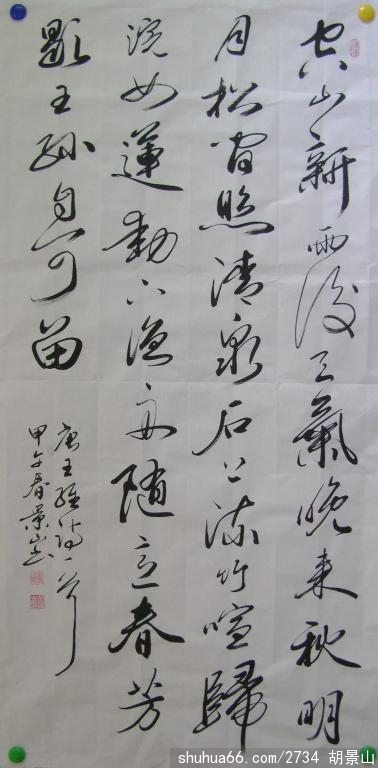 空山新雨後天氣晚來秋明
月松間照清泉石上流竹喧歸
浣女蓮動下漁舟隨意春芳
歇王孫自可留
唐王維詩一首
甲午春景山書
shuhua66.com/2734 胡景山